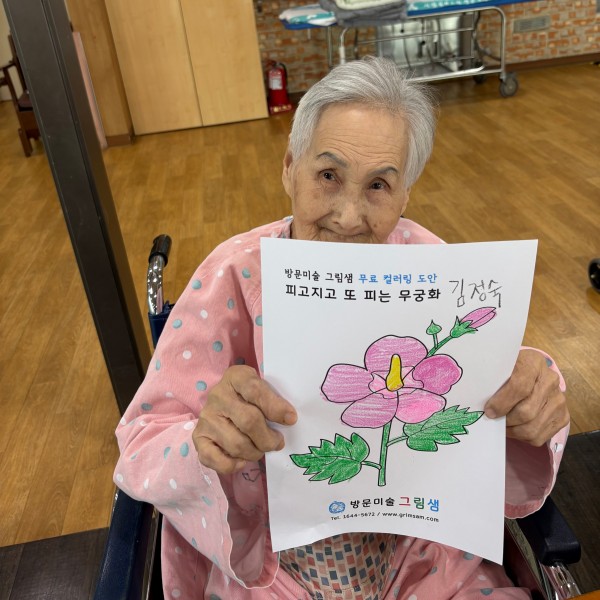 방문미술 그림샘 무료 컬러링 도안
피고지고 또 피는 무궁화 김정숙
방문미술 그림샘
Tel. 1644-5672 / www.grimsam.com